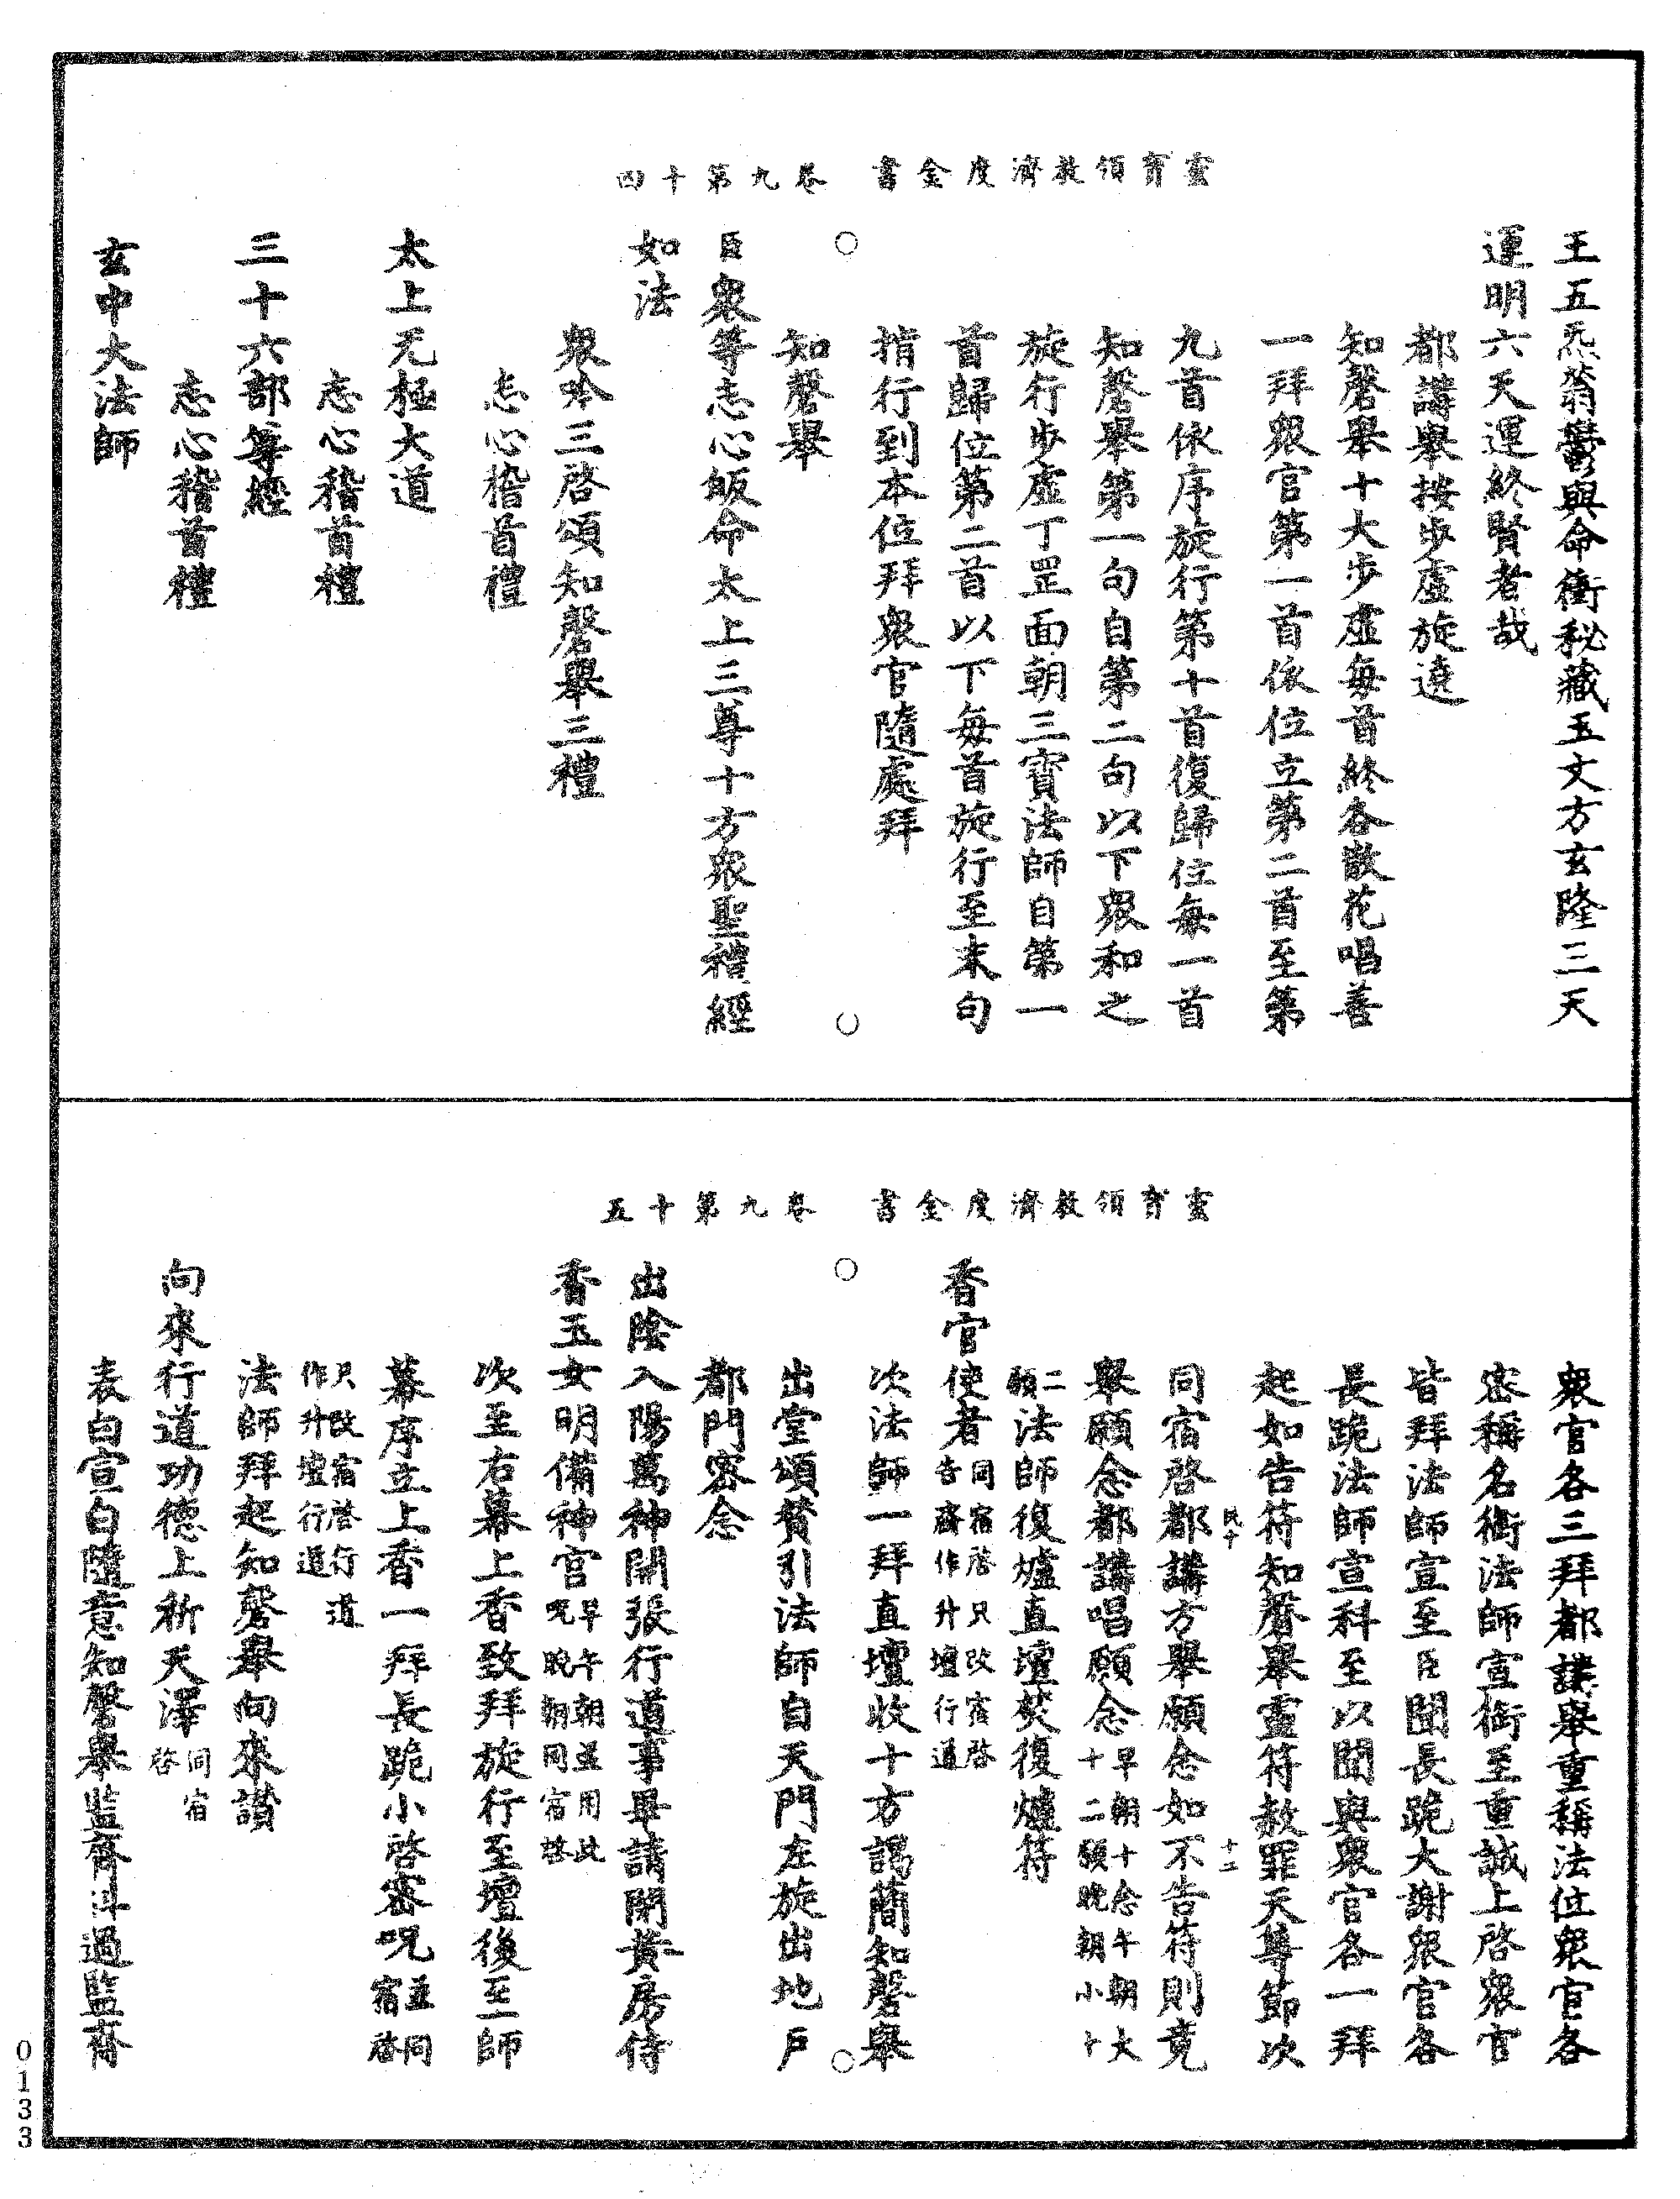 靈寶領教濟度金書 卷九第十四
王五炁蓊鬱與命衝秘藏玉文方玄隆三天
運明六天運終賢者哉
都講舉按步虛旋遶
知磬舉十大步虛每首終各散花唱善
一拜眾官第一首依位立第二首至第
九首依序旋行第十首復歸位每一首
知磬舉第一句自第二句以下眾和之
旋行步虛丁罡面朝三寶法師自第一
首歸位第二首以下每首旋行至末句
指行到本位拜眾官隨處拜
知磬舉
臣眾等志心皈命太上三尊十方眾聖禮經
如法
眾吟三啓頌知磬舉三禮
志心稽首禮
太上无極大道
志心稽首禮
三十六部等經
志心稽首禮
玄中大法師
靈寶領教濟度金書 卷九第十五
眾官各三拜都講舉重稱法位眾官各
密稱名銜法師宣銜至重誠上啓眾官
皆拜法師宣至臣聞長跪大謝眾官各
長跪法師宣科至以聞與眾官各一拜
起如告符知磬舉靈符赦罪天尊節次
民十 十二
同宿啓都講方舉願念如不告符則竟
舉願念都講唱願念早朝十念午朝大十二願晚朝小十
二願法師復爐直壇焚復爐符
香官使者同宿啓只改宿啓告齋作升壇行道
次法師一拜直壇收十方謁簡知磬舉
出堂頌贊引法師自天門左旋出地戶
都門密念
出陰入陽萬神開張行道事畢請開黃房侍
香玉女明備神官早午朝並用此呪晚朝同宿啓
次至右幕上香致拜旋行至壇後至師
幕序立上香一拜長跪小啓密呪並同宿啓
只改宿啓行道作升壇行道
法師拜起知磬舉向來讚
向來行道功德上祈天澤同宿啓
表白宣白隨意知磬舉監齋糾過監齋
0133